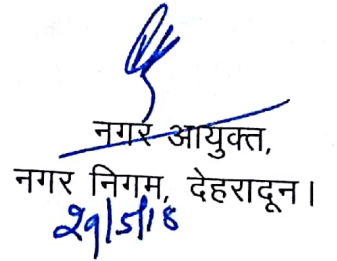 नगर आयुक्त,
नगर निगम, देहरादून।
29/5/18